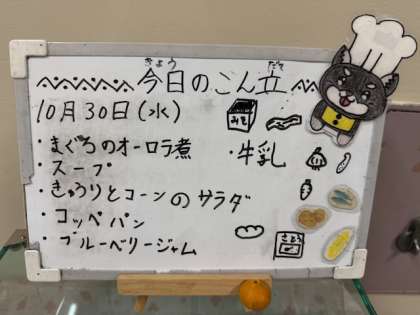 今日のこん立
きょう だて
10月30日(水)
・まぐろのオーロラ煮
・スープ
・きゅうりとコーンのサラダ
・コッペパン
・ブルーベリージャム
・牛乳
みそ
さとう